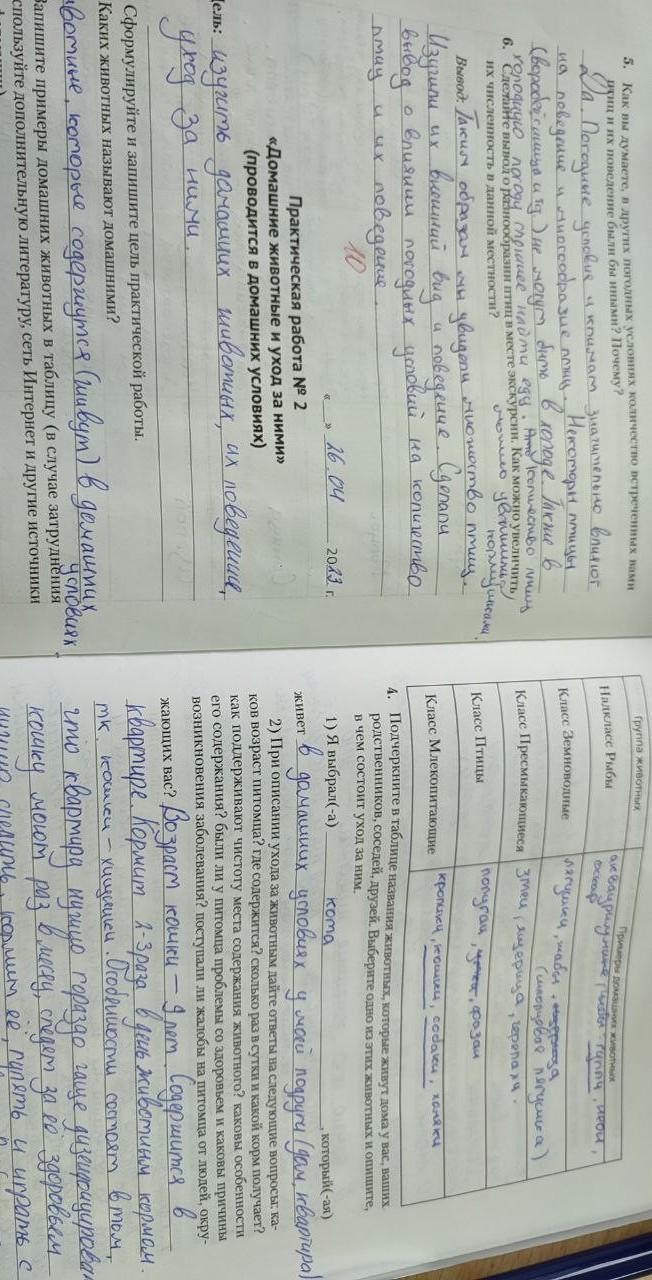 5. Как вы думаете, в других погодных условиях количество встреченных вами
птиц и их поведение были бы иными? Почему?
Да. Погодные условие и климат значительно влияют
на поведение и многообразие птиц. Некоторы птицы
(воробей синица и тд) не могут быть в холоде. Также в
холодную погоду сложнее найти еду. количество птиц
6. Сделайте вывод о разнообразии птиц в месте экскурсии. Как можно увеличить
их численность в данной местности?
можно увеличить
кормушками.
Вывод: Таким образом мы увидели множество птиц
Изучили их внешний вид и поведение. Сделали
вывод о влиянии погодных условий на количество
птиц и их поведение.
10
« » 16.04 2023 г.
Практическая работа № 2
«Домашние животные и уход за ними»
(проводится в домашних условиях)
Цель: изучить домашних животных, их поведение,
уход за ними.
Сформулируйте и запишите цель практической работы.
Каких животных называют домашними?
животные, которые содержутся (живут) в домашних
условиях
Запишите примеры домашних животных в таблицу (в случае затруднения
используйте дополнительную литературу, сеть Интернет и другие источники
Группа животных Примеры домашних животных
Надкласс Рыбы гуппи,
оскар
Класс Земноводные лягушки, жабы,
(шпорцевая лягушка)
Класс Пресмыкающиеся змеи, ящерица, черепахи.
Класс Птицы попугаи, фазан
Класс Млекопитающие кролики, кошки, собаки, хомяки
4. Подчеркните в таблице названия животных, которые живут дома у вас, ваших
родственников, соседей, друзей. Выберите одно из этих животных и опишите,
в чем состоит уход за ним.
1) Я выбрал(-а) кота, который(-ая)
живет в домашних условиях у моей подруги (дом, квартира)
2) При описании ухода за животным дайте ответы на следующие вопросы: ка-
ков возраст питомца? где содержится? сколько раз в сутки и какой корм получает?
как поддерживают чистоту места содержания животного? каковы особенности
его содержания? были ли у питомца проблемы со здоровьем и каковы причины
возникновения заболевания? поступали ли жалобы на питомца от людей, окру-
жающих вас? Возраст кошки – 9 лет. Содержится в
квартире. Кормит 2-3 раза в день животным кормом.
тк кошки – хищники. Особенности состоят в том,
что квартиру нужно гораздо чаще дизенфицироват
кошку моют раз в месяц, следят за её здоровьем
следить, кормим её, гулять и играть с